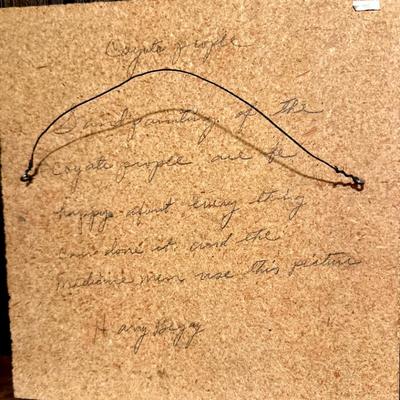 Coyote people
Sandpainting of the
coyote people are the
happy about every thing
can done it and the
medicine men use this picture
Harry Begay